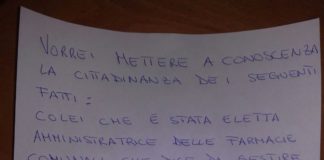 VORREI METTERE A CONOSCENZA
LA CITTADINANZA DEI SEGUENTI
FATTI:
COLEI CHE È STATA ELETTA
AMMINISTRATRICE DELLE FARMACIE
COMUNALI CHE DICE DA GESTIRE